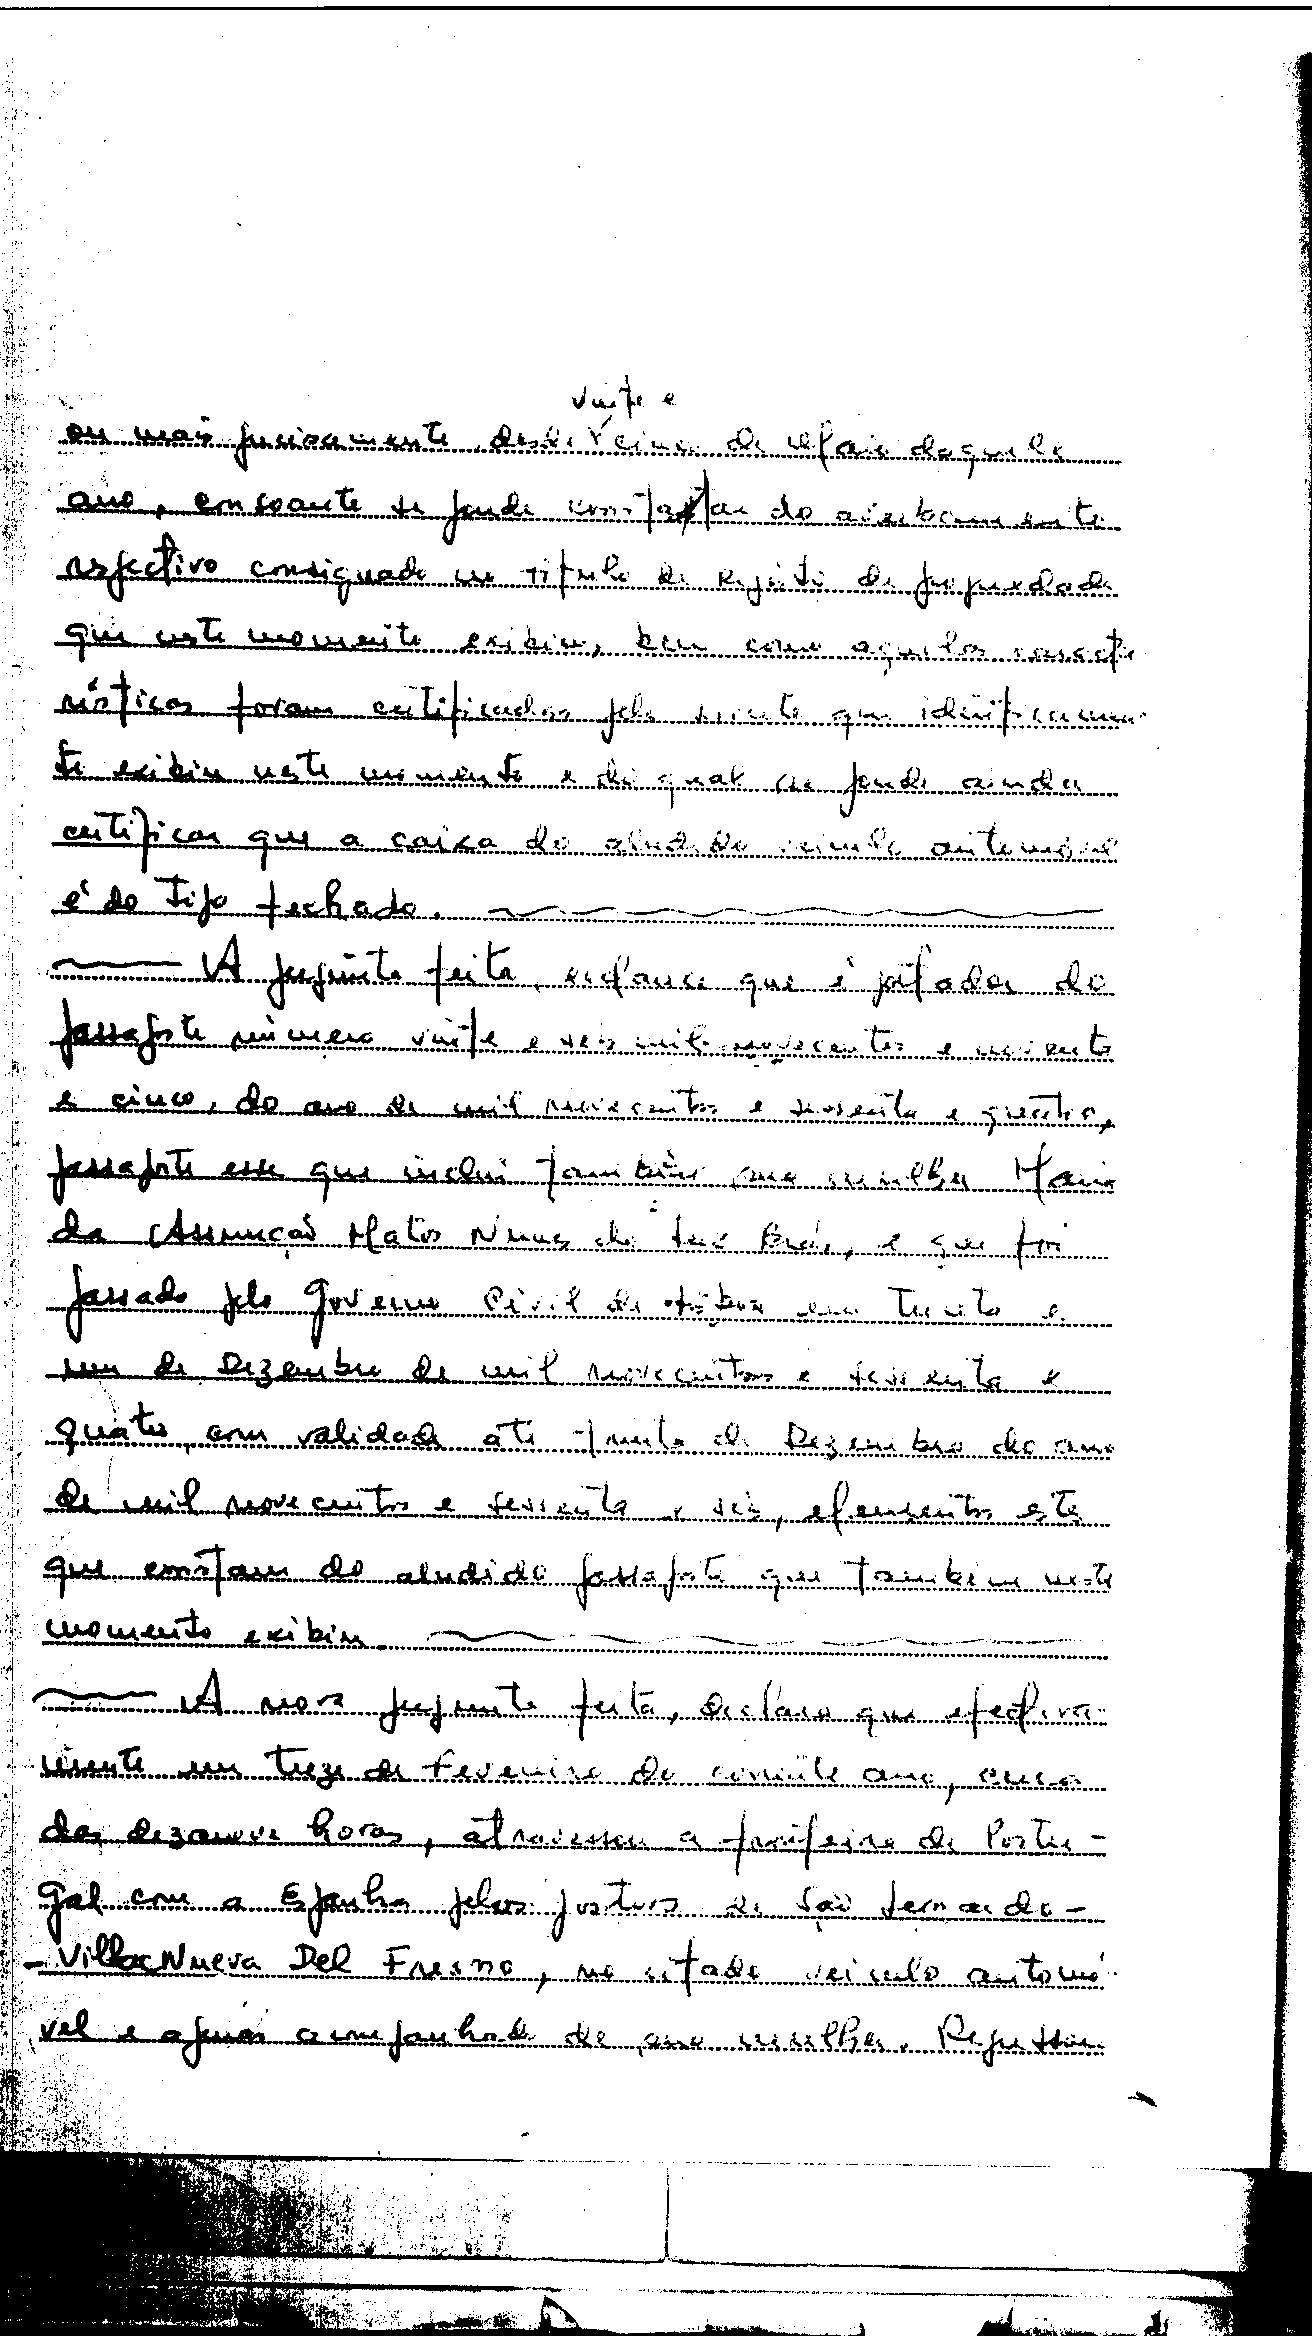 vinte e
ou mais precisamente, desde cinco de Maio daquele
ano, consoante se pode constatar do averbamento
respectivo consignado no titulo de registo de propriedade
que neste momento exibiu, bem como aquelas caracte
rísticas foram certificadas pelo que identicamen
te exibiu neste momento e do qual se pode ainda
certificar que a caixa do aludido veiculo automóvel
é do tipo fechado.
A pergunta feita, esclarece que é portador do
passaporte número vinte e seis mil novecentos e noventa
e cinco, do ano de mil novecentos e sessenta e quatro,
passaporte esse que inclui também sua mulher Maria
da Assunção Matos Nunes da Brás, e que foi
passado pelo Governo Civil de Lisboa em trinta e
um de Dezembro de mil novecentos e sessenta e
quatro, com validade até trinta de Dezembro do ano
de mil novecentos e sessenta e seis, elementos estes
que constam do aludido passaporte que também neste
momento exibiu.
A nova pergunta feita, declara que efectiva-
mente em treze de Fevereiro do corrente ano, cerca
das dezanove horas, atravessou a fronteira de Portu-
gal com a Espanha pelos postos de São Leonardo-
-Villa Nueva Del Fresno, no citado veiculo automó
vel e apenas acompanhado de sua mulher. Regressou